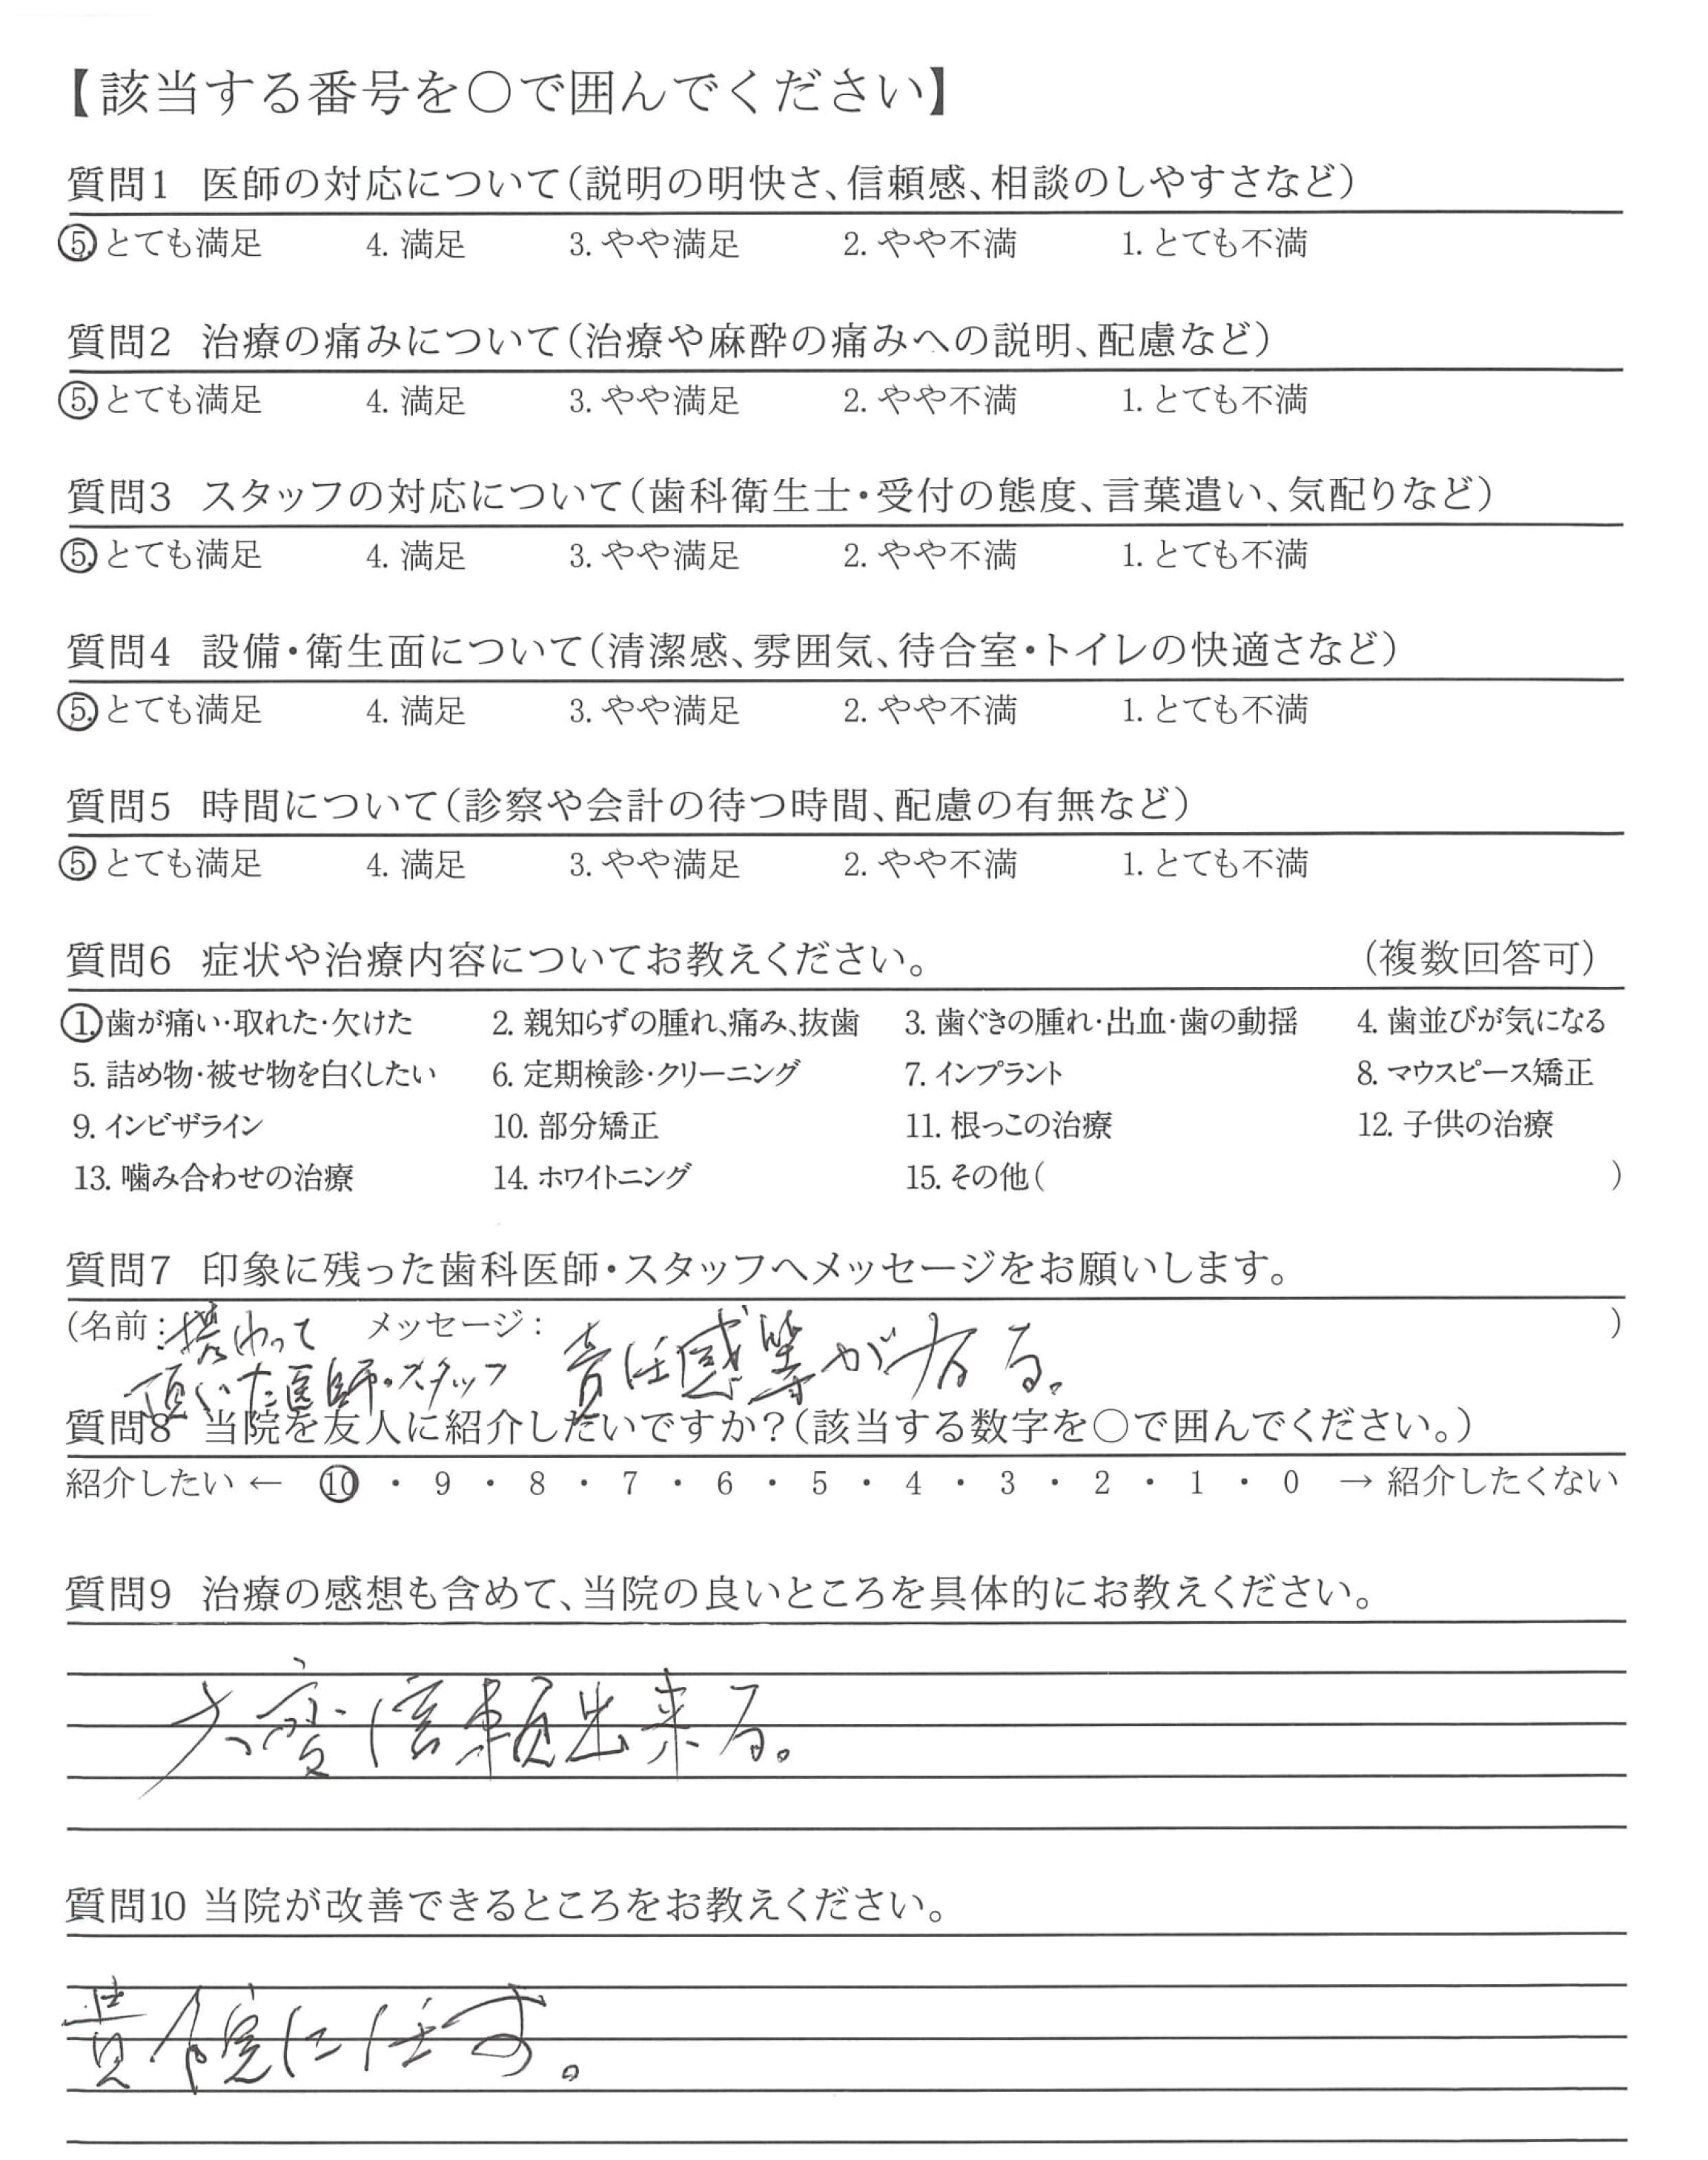 【該当する番号を○で囲んでください】
質問1 医師の対応について(説明の明快さ、信頼感、相談のしやすさなど)
5. とても満足 4. 満足 3. やや満足 2. やや不満 1. とても不満
質問2 治療の痛みについて(治療や麻酔の痛みへの説明、配慮など)
5. とても満足 4. 満足 3. やや満足 2. やや不満 1. とても不満
質問3 スタッフの対応について(歯科衛生士・受付の態度、言葉遣い、気配りなど)
5. とても満足 4. 満足 3. やや満足 2. やや不満 1. とても不満
質問4 設備・衛生面について(清潔感、雰囲気、待合室・トイレの快適さなど)
5. とても満足 4. 満足 3. やや満足 2. やや不満 1. とても不満
質問5 時間について(診察や会計の待つ時間、配慮の有無など)
5. とても満足 4. 満足 3. やや満足 2. やや不満 1. とても不満
質問6 症状や治療内容についてお教えください。 (複数回答可)
1. 歯が痛い・取れた・欠けた 2. 親知らずの腫れ、痛み、抜歯 3. 歯ぐきの腫れ・出血・歯の動揺 4. 歯並びが気になる
5. 詰め物・被せ物を白くしたい 6. 定期検診・クリーニング 7. インプラント 8. マウスピース矯正
9. インビザライン 10. 部分矯正 11. 根っこの治療 12. 子供の治療
13. 噛み合わせの治療 14. ホワイトニング 15. その他( )
質問7 印象に残った歯科医師・スタッフへメッセージをお願いします。
(名前:携わって メッセージ: )
頂いた医師・スタッフ 責任感等が有る。
質問8 当院を友人に紹介したいですか?(該当する数字を○で囲んでください。)
紹介したい ← 10 ・ 9 ・ 8 ・ 7 ・ 6 ・ 5 ・ 4 ・ 3 ・ 2 ・ 1 ・ 0 → 紹介したくない
質問9 治療の感想も含めて、当院の良いところを具体的にお教えください。
大変信頼出来る。
質問10 当院が改善できるところをお教えください。
貴院に任す。